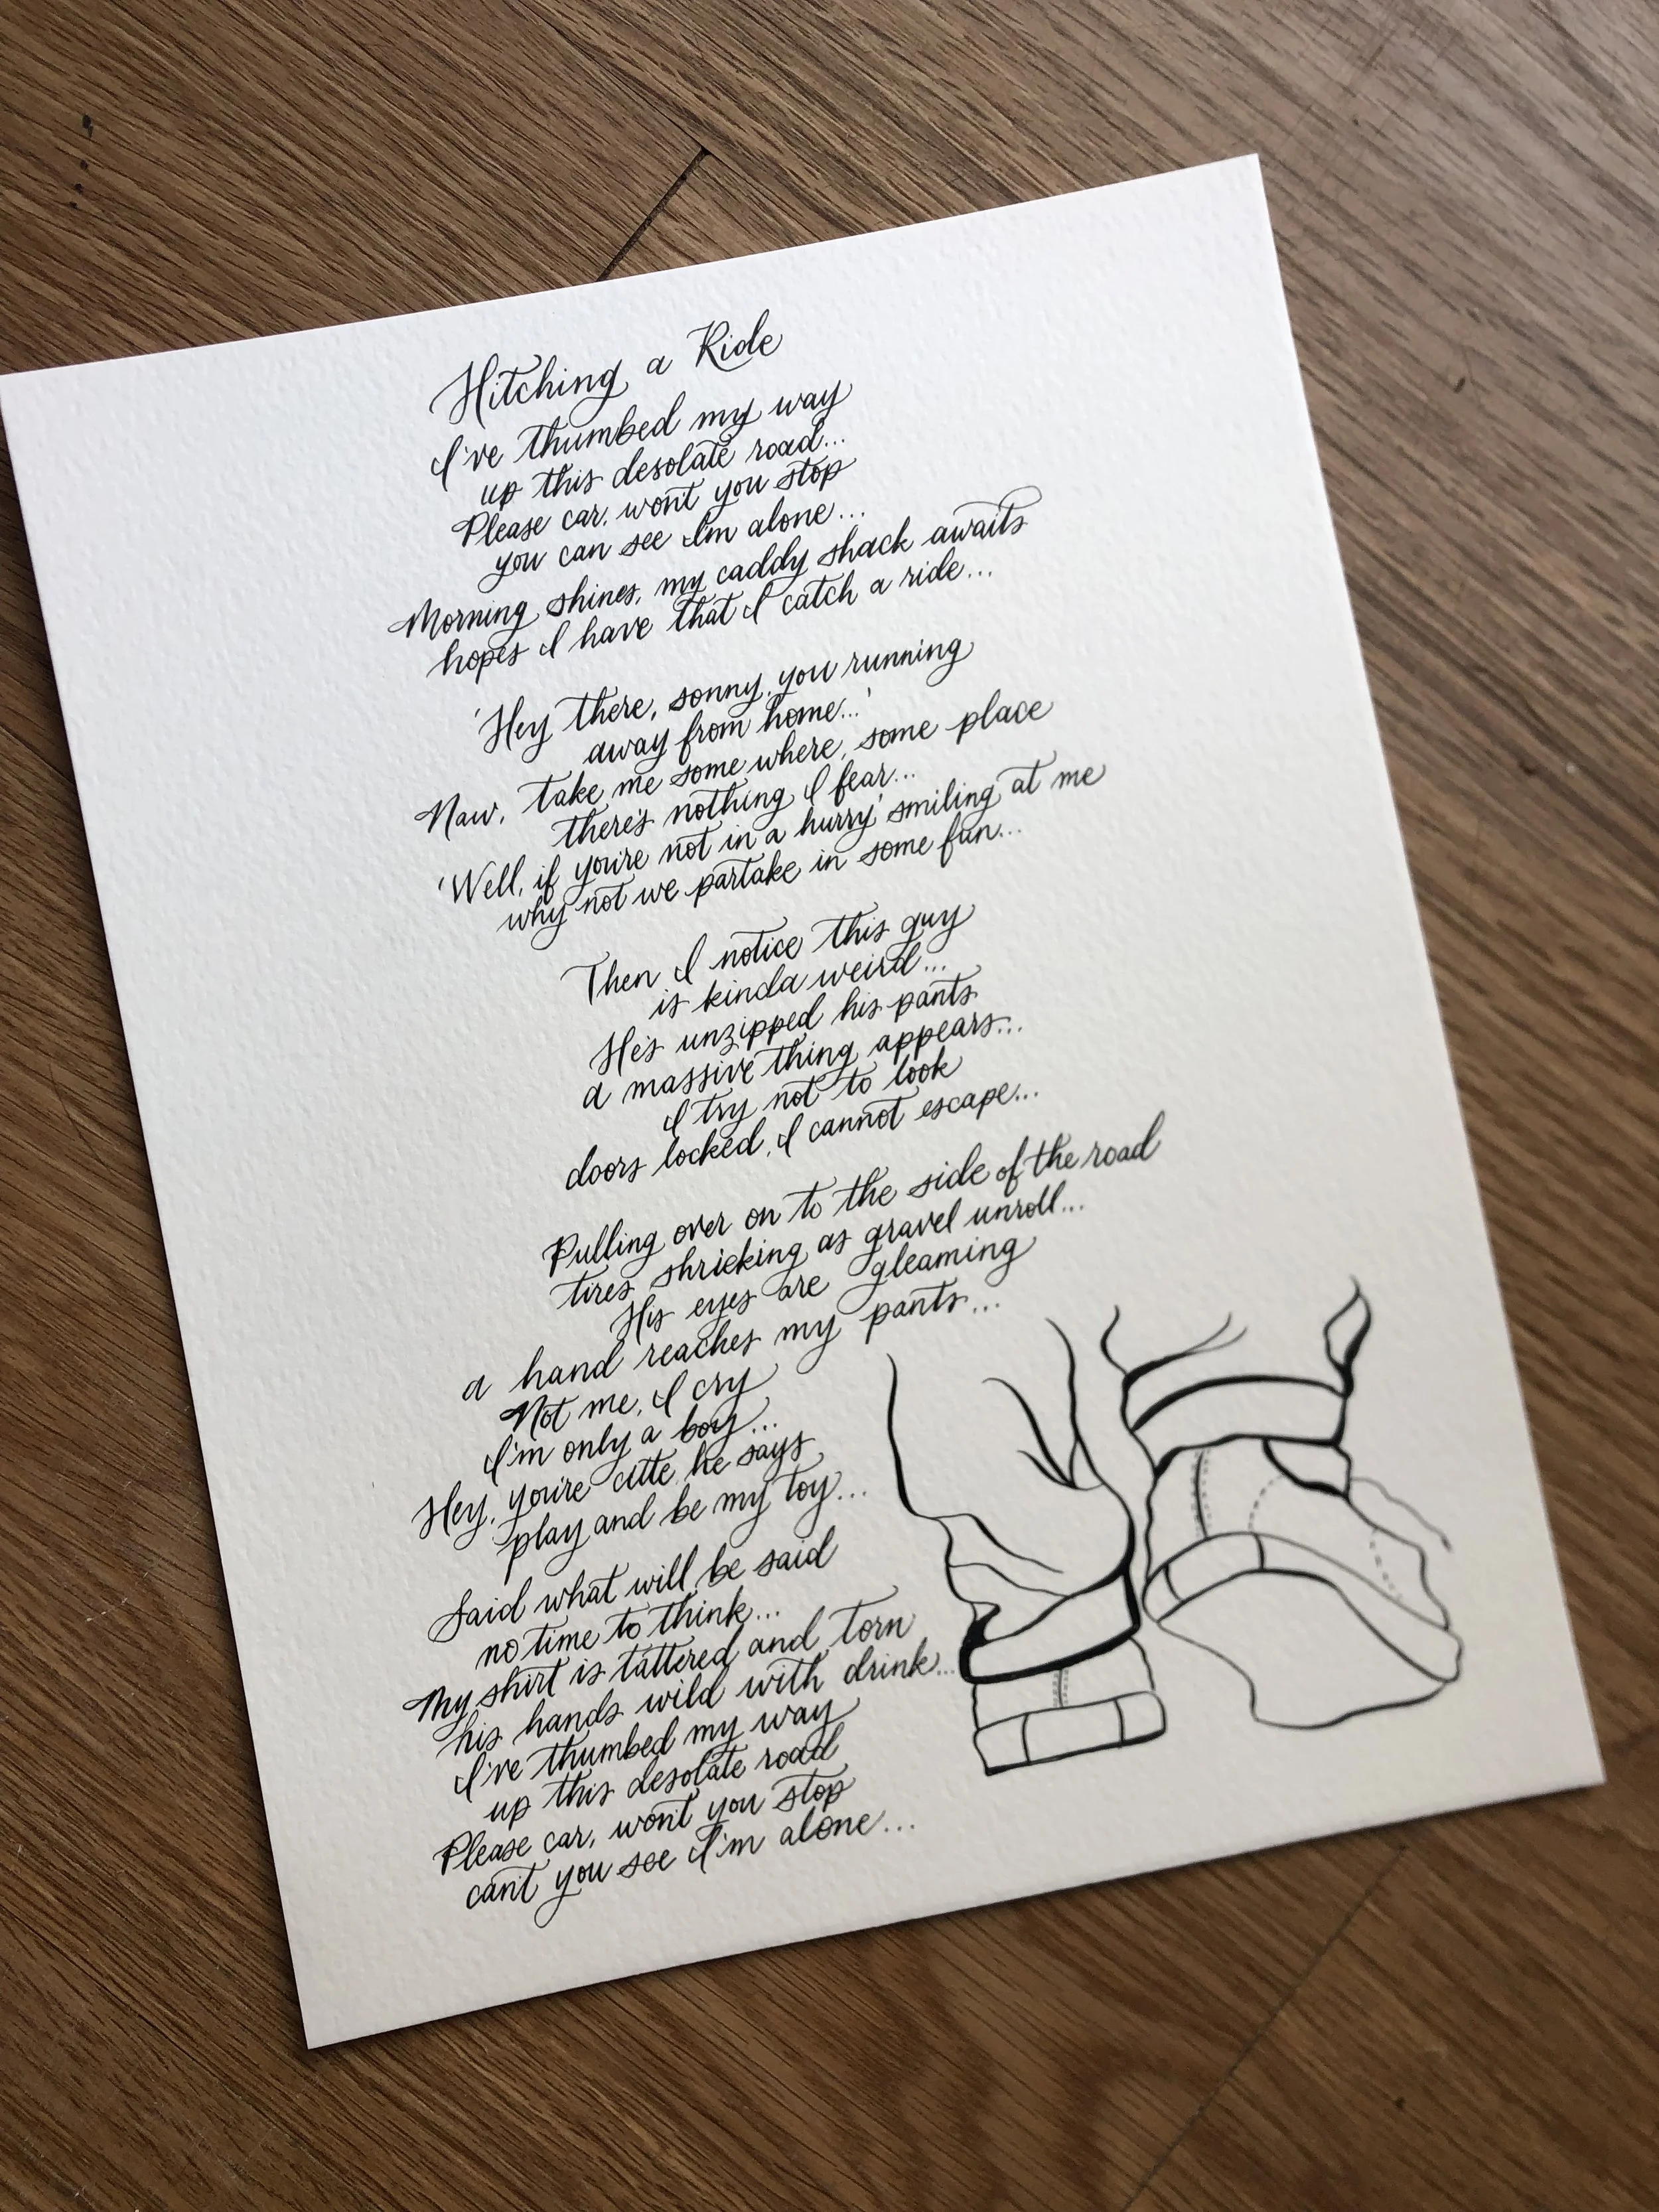 Hitching a Ride
I've thumbed my way
up this desolate road...
Please car, won't you stop
you can see I'm alone...
Morning shines, my caddy shack awaits
hopes I have that I catch a ride...
'Hey there, sonny, you running
away from home...'
Naw, take me some where, some place
there's nothing I fear...
'Well, if you're not in a hurry' smiling at me
why not we partake in some fun...
Then I notice this guy
is kinda weird...
He's unzipped his pants
a massive thing appears...
I try not to look
doors locked, I cannot escape...
Pulling over on to the side of the road
tires shrieking as gravel unroll...
His eyes are gleaming
a hand reaches my pants...
Not me, I cry
I'm only a boy...
Hey, you're cute he says
play and be my toy...
Said what will be said
no time to think...
My shirt is tattered and torn
his hands wild with drink...
I've thumbed my way
up this desolate road
Please car, won't you stop
can't you see I'm alone...